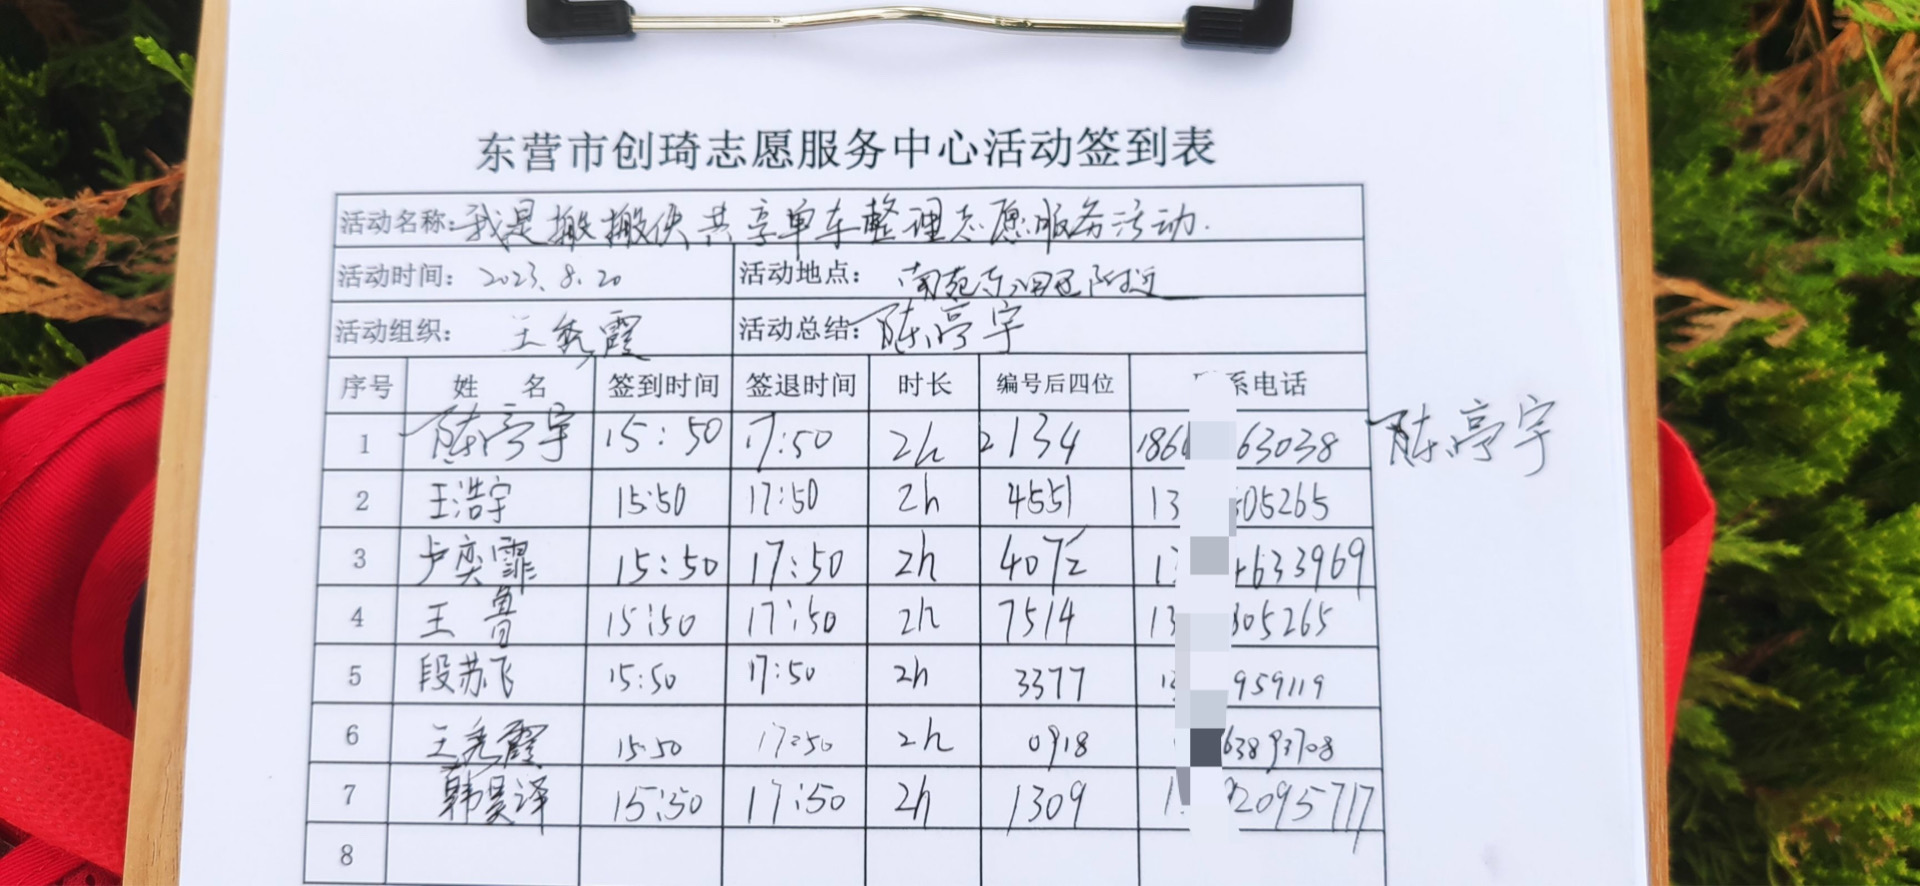 东营市创琦志愿服务中心活动签到表
活动名称:我是搬搬侠共享单车整理志愿服务活动.
活动时间: 2023.8.20 活动地点: 南苑 附近
活动组织: 王秀霞 活动总结: 陈亭宇
序号 姓 名 签到时间 签退时间 时长 编号后四位 系电话
1 陈亭宇 15:50 17:50 2h 2134 186 63038 陈亭宇
2 王浩宇 15:50 17:50 2h 4551 13 05265
3 卢奕霏 15:50 17:50 2h 407 1 4633969
4 王鲁 15:50 17:50 2h 7514 13 305265
5 段苏飞 15:50 17:50 2h 3377 1 959119
6 王秀霞 15:50 17:50 2h 0918 63893708
7 韩昊译 15:50 17:50 2h 1309 1 2095717
8